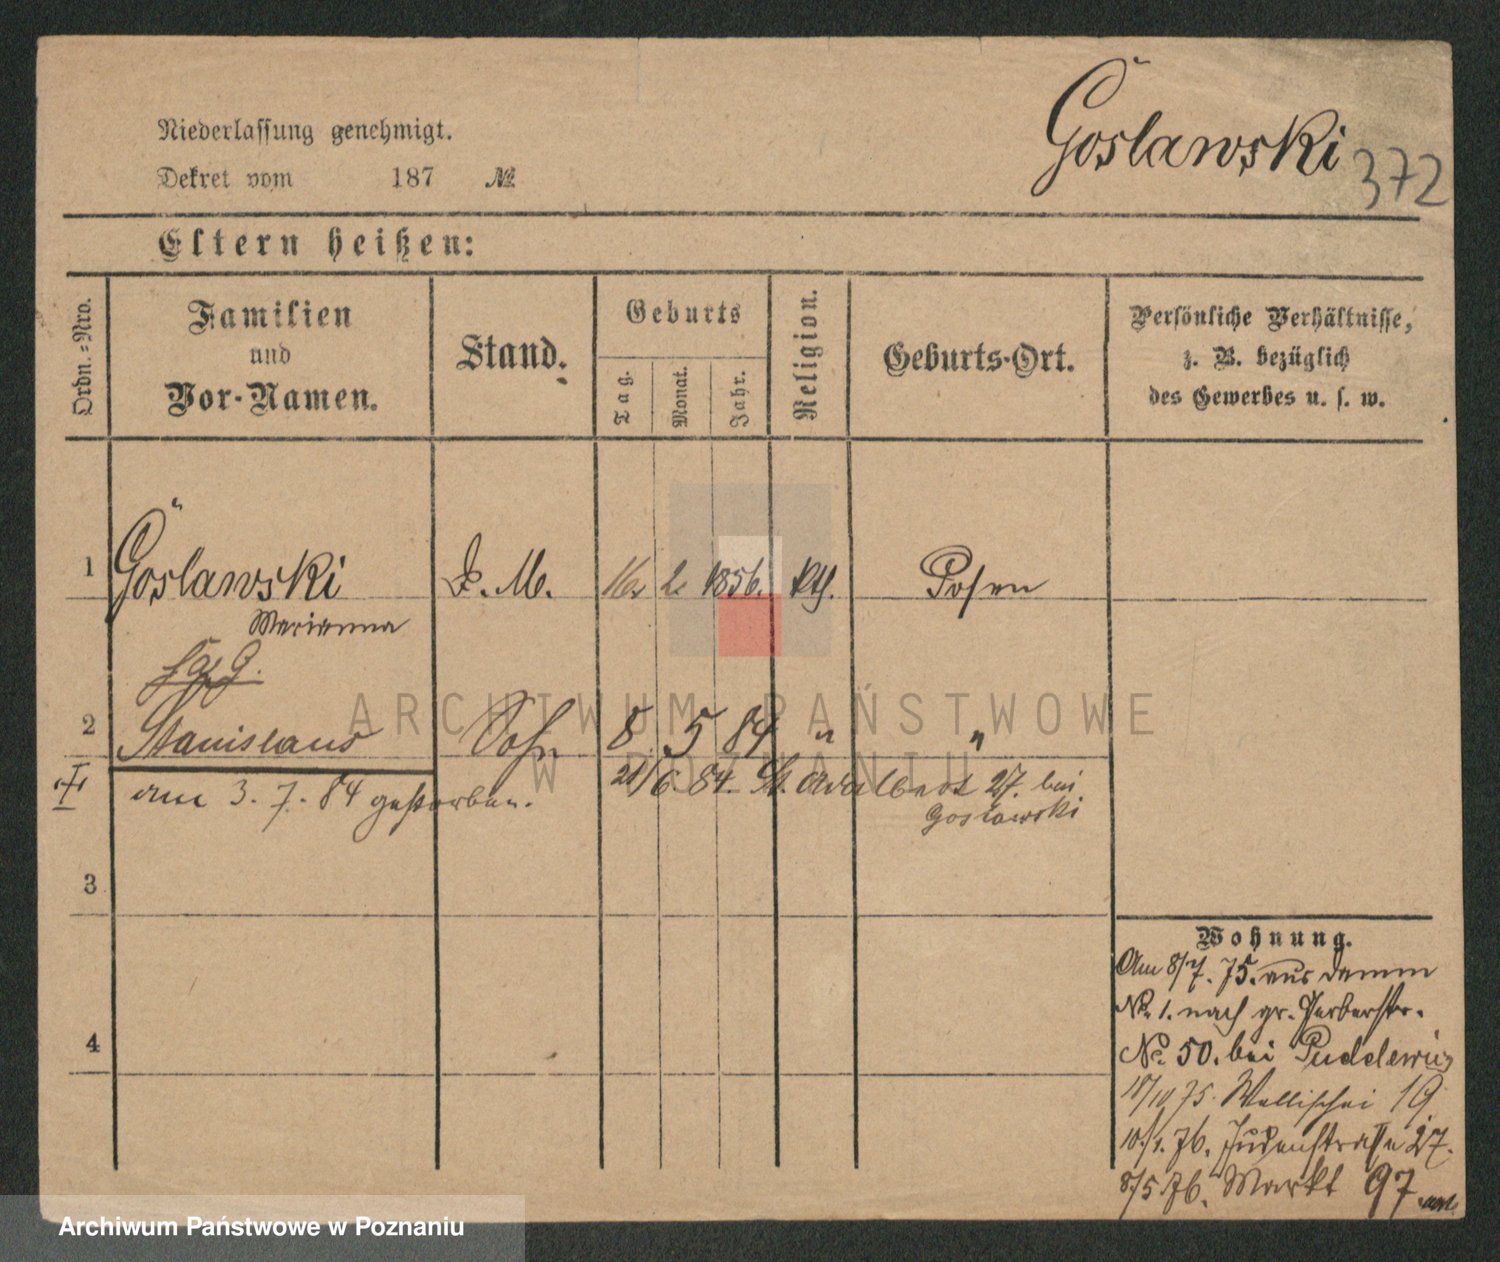 Gosławski 372
Niederlassung genehmigt.
Dekret vom 187 №
Eltern heißen:
Ordn.-Nro.
Familien
und
Vor-Namen.
Stand.
Geburts
Tag.
Monat.
Jahr.
Religion.
Geburts-Ort.
Persönliche Verhältnisse,
z. B. bezüglich
des Gewerbes u. s. w.
1 Goslawski D. M. 16. 2. 1856. kth. Posen
Marianna
2 Stanislaus Sohn 8. 5 84 " "
am 3. 7. 84 gestorben.
21/6. 84. St. Adalbert 27. bei
Goslawski
3
4
Wohnung.
Am 8/7. 75. aus Damm
No. 1. nach gr. Gerberstr.
No. 50. bei
18/10 75. Wallischei 19.
10/1. 76. Judenstraße 27.
8/5 76. Markt 97.
ARCHIWUM PAŃSTWOWE
W POZNANIU
Archiwum Państwowe w Poznaniu